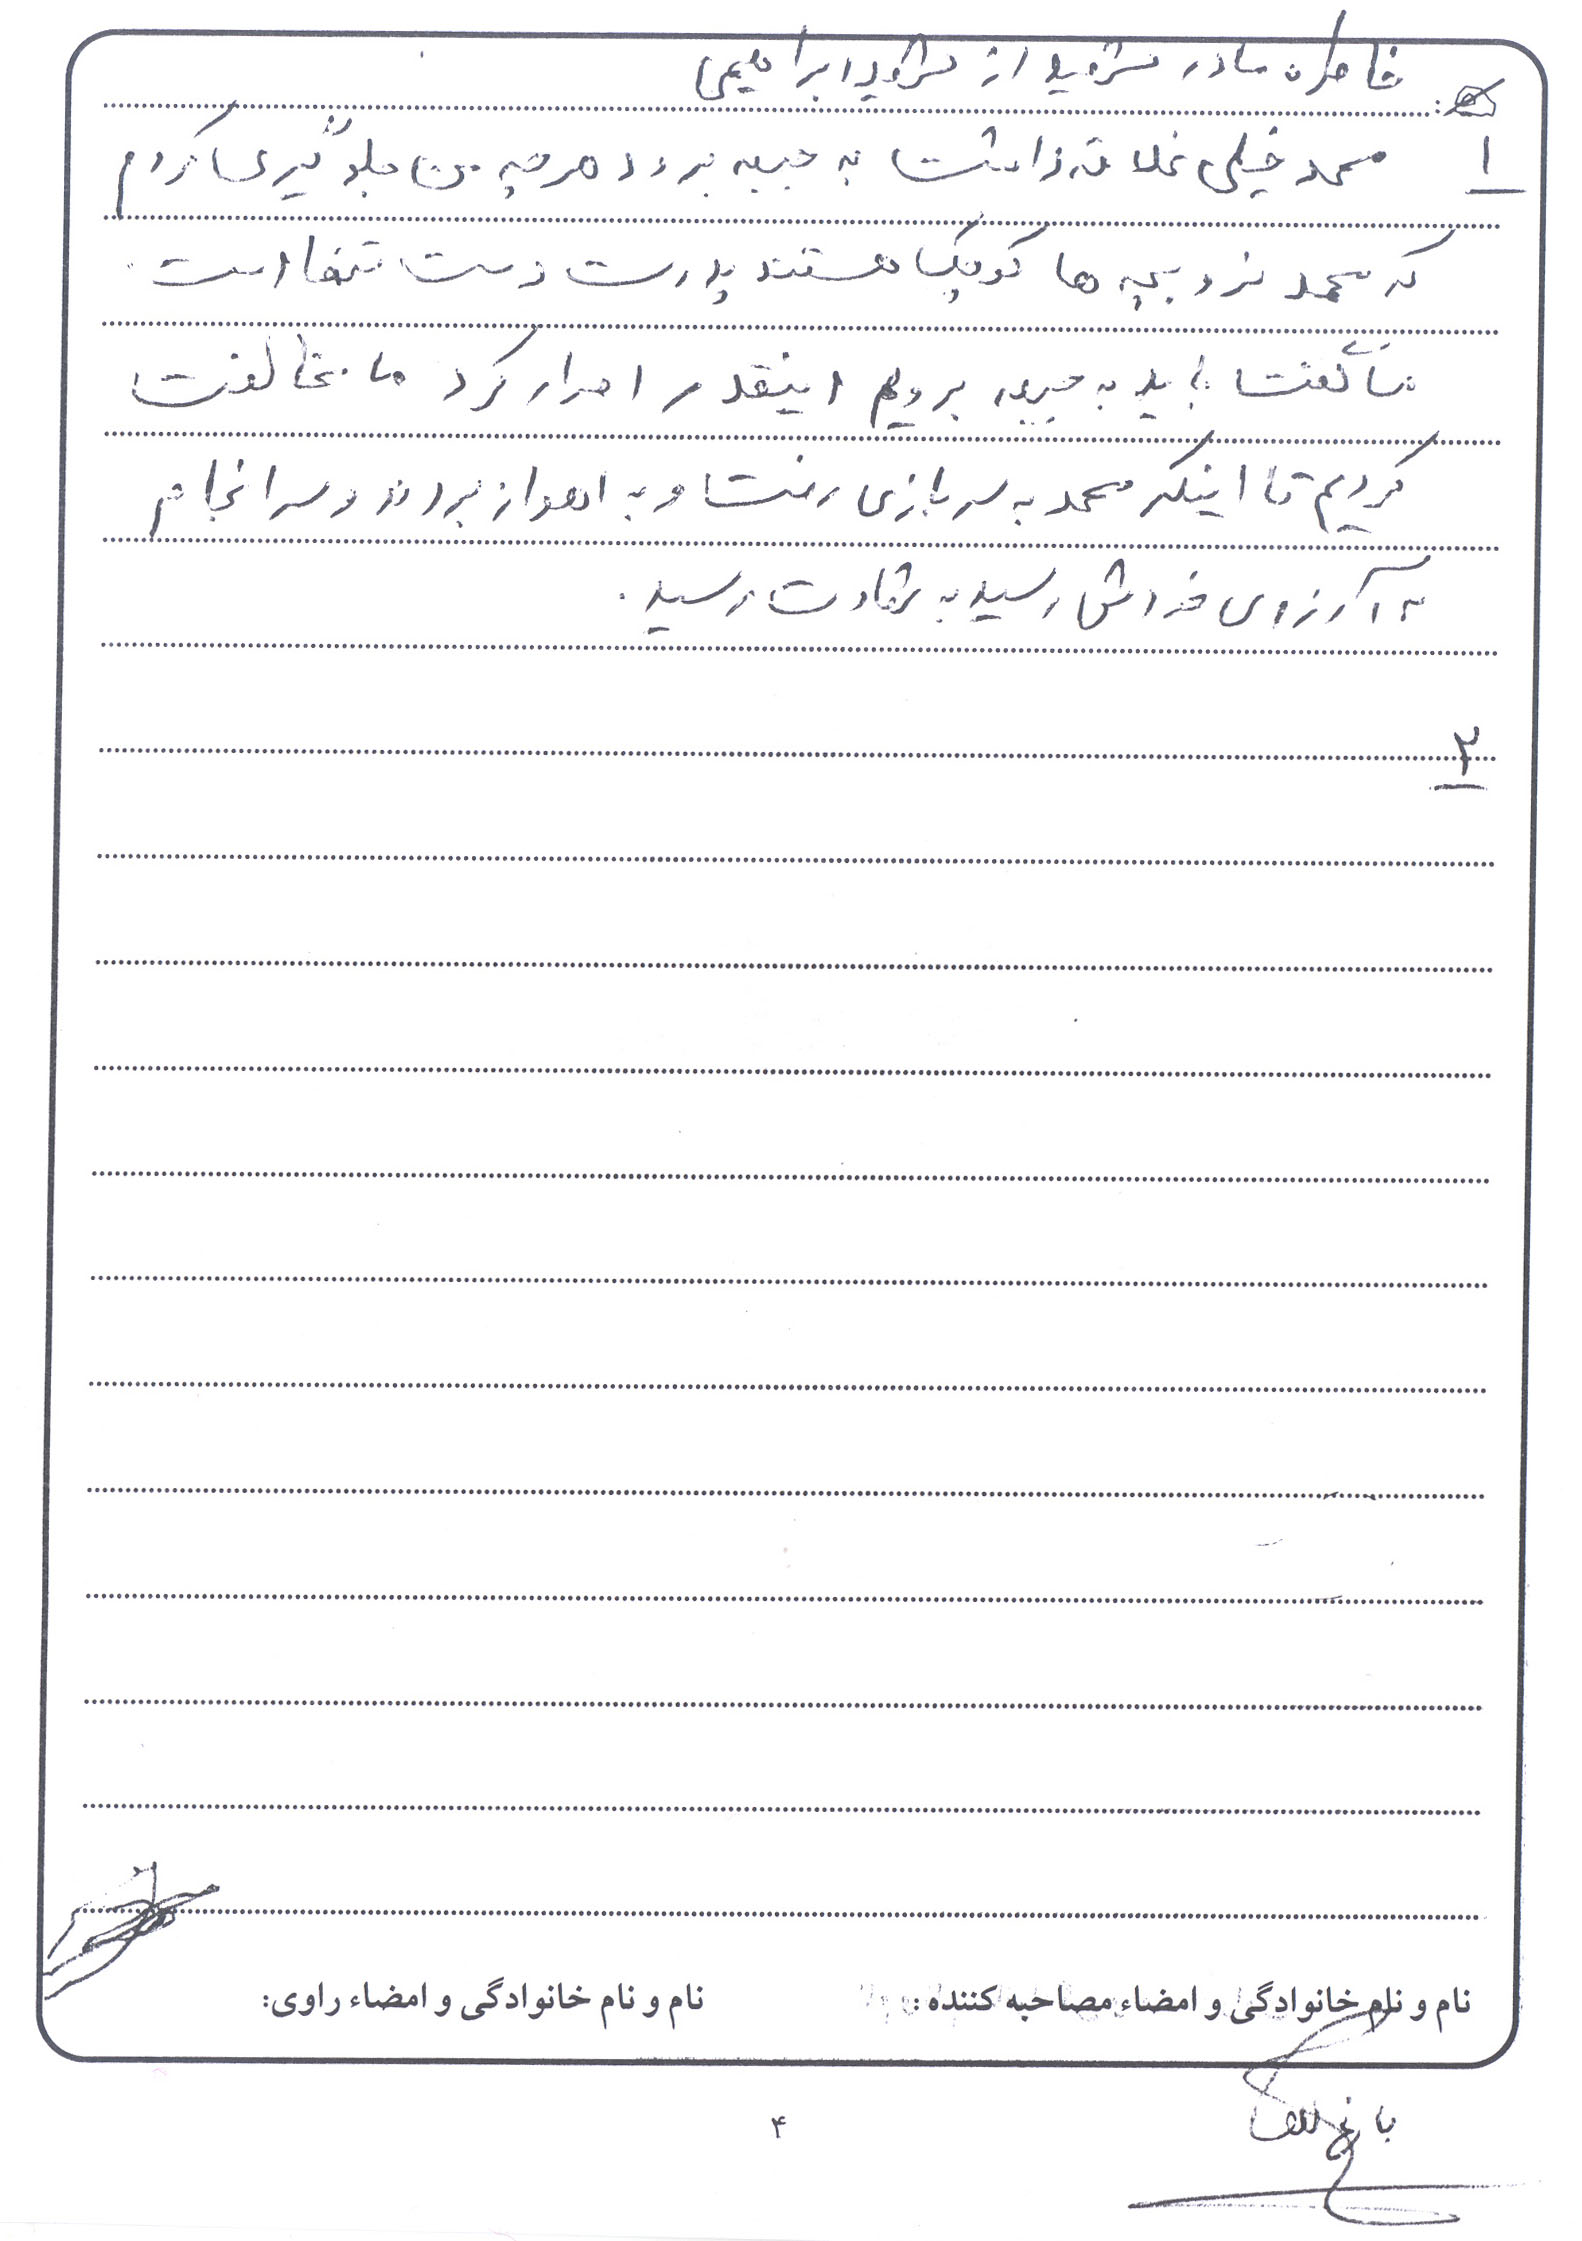 خاطره مادر شهید از شهید ابراهیمی
۱ محمد خیلی علاقه داشت به جبهه برود هرچه من جلوگیری کردم
که محمد نرو بچه ها کوچک هستند پدرت دست تنها است.
می گفت باید به جبهه برویم اینقدر اصرار کرد ما مخالفت
کردیم تا اینکه محمد به سربازی رفت و به اهواز بردند و سرانجام
به آرزوی خودش رسید به شهادت رسید.
۲
نام و نام خانوادگی و امضاء مصاحبه کننده: نام و نام خانوادگی و امضاء راوی:
۴